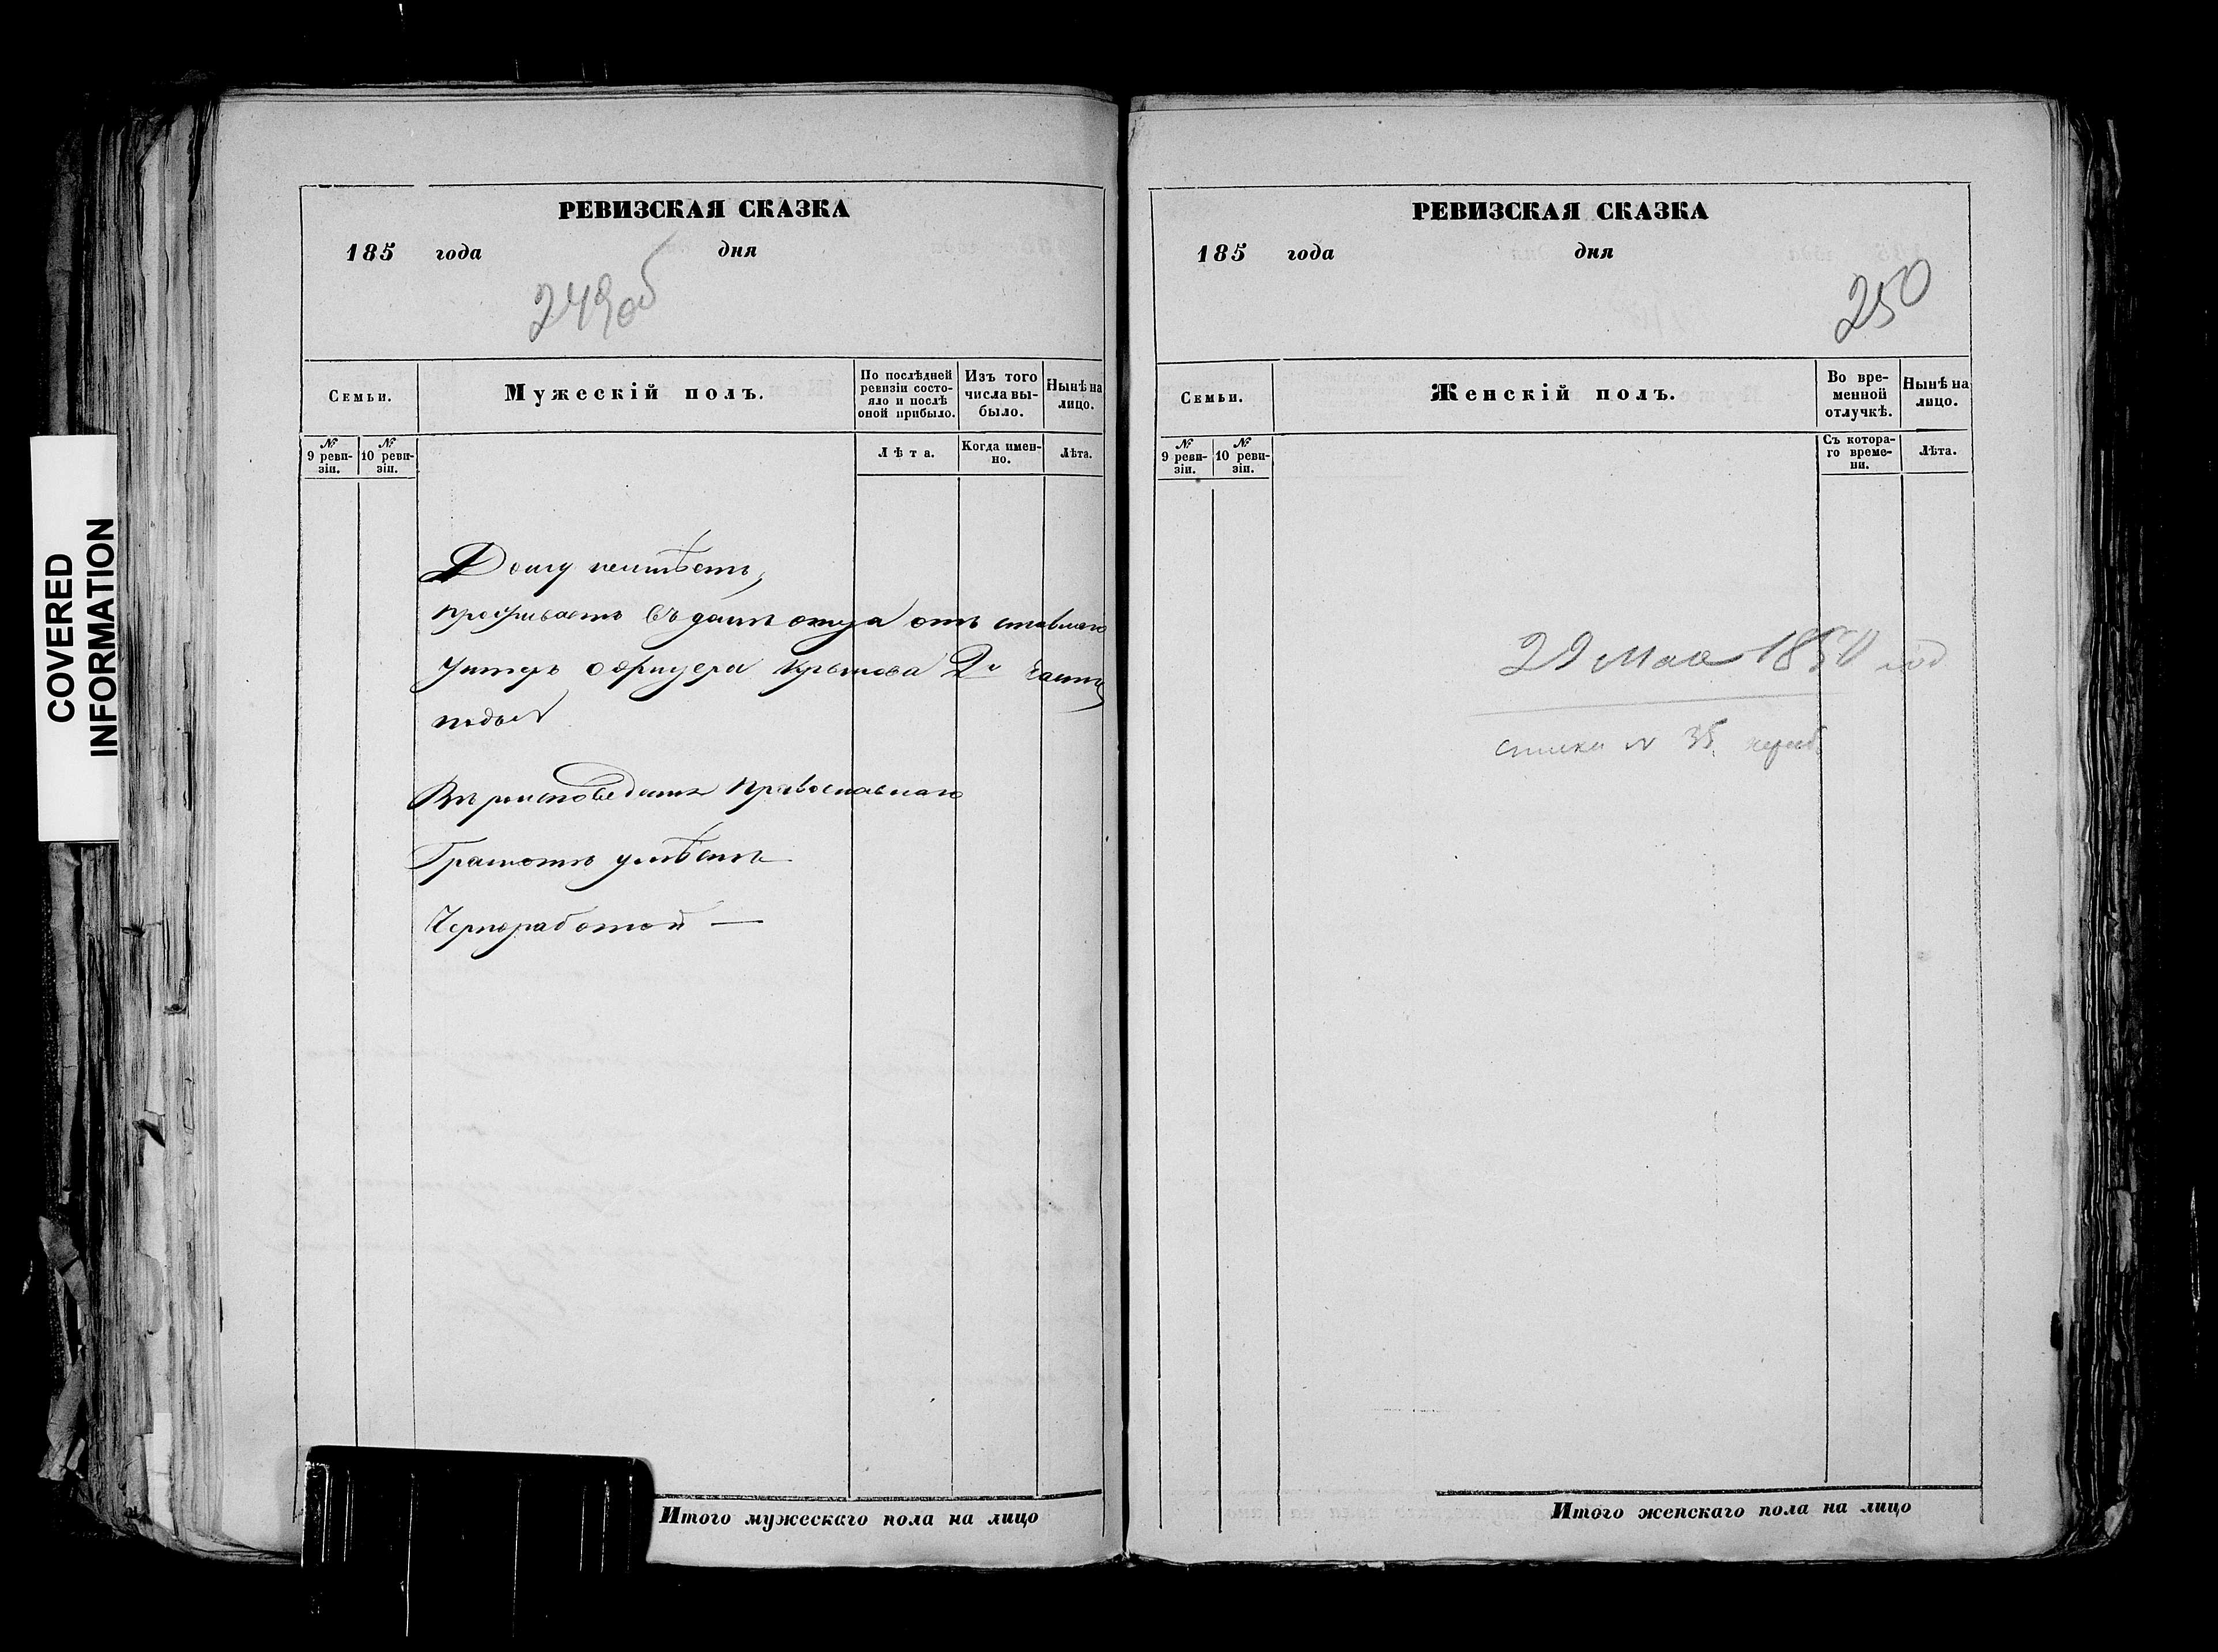 COVERED
INFORMATION
РЕВИЗСКАЯ СКАЗКА
185 года дня
249об
Семьи.
Мужескій полъ.
По послѣдней
ревизіи состо-
яло и послѣ
оной прибыло.
Изъ того
числа вы-
было.
Нынѣ на
лицо.
№
9 реви-
зіи.
№
10 реви-
зіи.
Лѣта.
Когда имен-
но.
Лѣта.
Дому неимѣетъ,
проживаетъ въ домѣ отца от ставнаго
унтеръ офицера Крылова 2й части
Вѣроисповеданія Православнаго
Грамотѣ умѣетъ
Чернорабочій —
Итого мужескаго пола на лицо
РЕВИЗСКАЯ СКАЗКА
185 года дня
250
Семьи.
Женскій полъ.
Во вре-
менной
отлучкѣ.
Нынѣ на
лицо.
№
9 реви-
зіи.
№
10 реви-
зіи.
Съ котора-
го време-
ни.
Лѣта.
29 Мая 1850 год
списки № 35
Итого женскаго пола на лицо